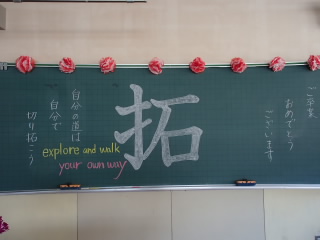 ご卒業
おめでとう
ございます
拓
自分の道は
自分で
切り拓こう
explore and walk
your own way